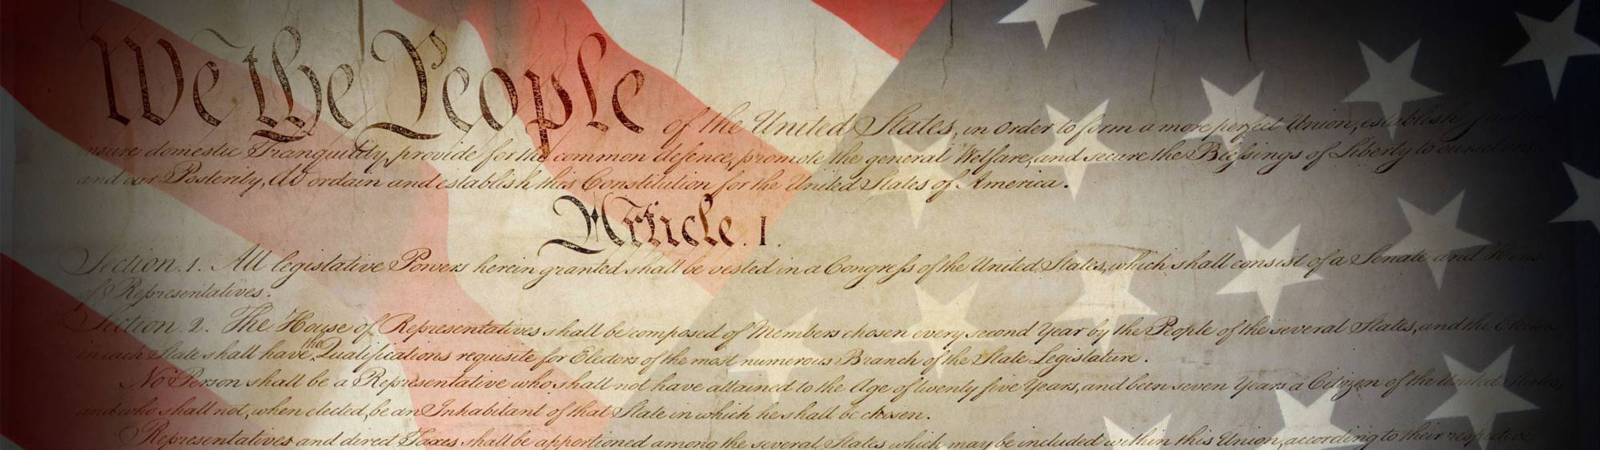 We the People of the United States, in Order to form a more perfect Union, establish
insure domestic Tranquility, provide for the common defence, promote the general Welfare, and secure the Blessings of Liberty to ourselves
and our Posterity, do ordain and establish this Constitution for the United States of America.
Article. I.
Section. 1. All legislative Powers herein granted shall be vested in a Congress of the United States, which shall consist of a Senate and House
of Representatives.
Section. 2. The House of Representatives shall be composed of Members chosen every second Year by the People of the several States, and the Electors
in each State shall have the Qualifications requisite for Electors of the most numerous Branch of the State Legislature.
No Person shall be a Representative who shall not have attained to the Age of twenty five Years, and been seven Years a Citizen of the United States,
and who shall not, when elected, be an Inhabitant of that State in which he shall be chosen.
Representatives and direct Taxes shall be apportioned among the several States which may be included within this Union, according to their respective